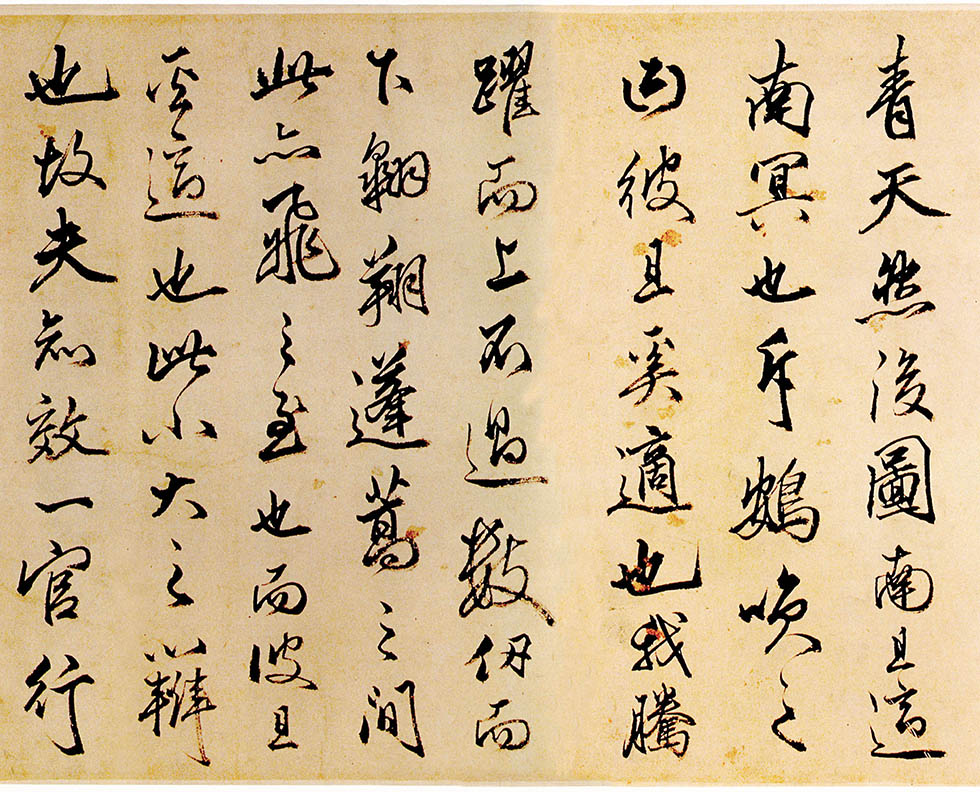 青天然後圖南且適
南冥也斥鴳笑之
曰彼且奚適也我騰
躍而上不過數仞而
下翱翔蓬蒿之間
此亦飛之至也而彼且
奚適也此小大之辯
也故夫知效一官行